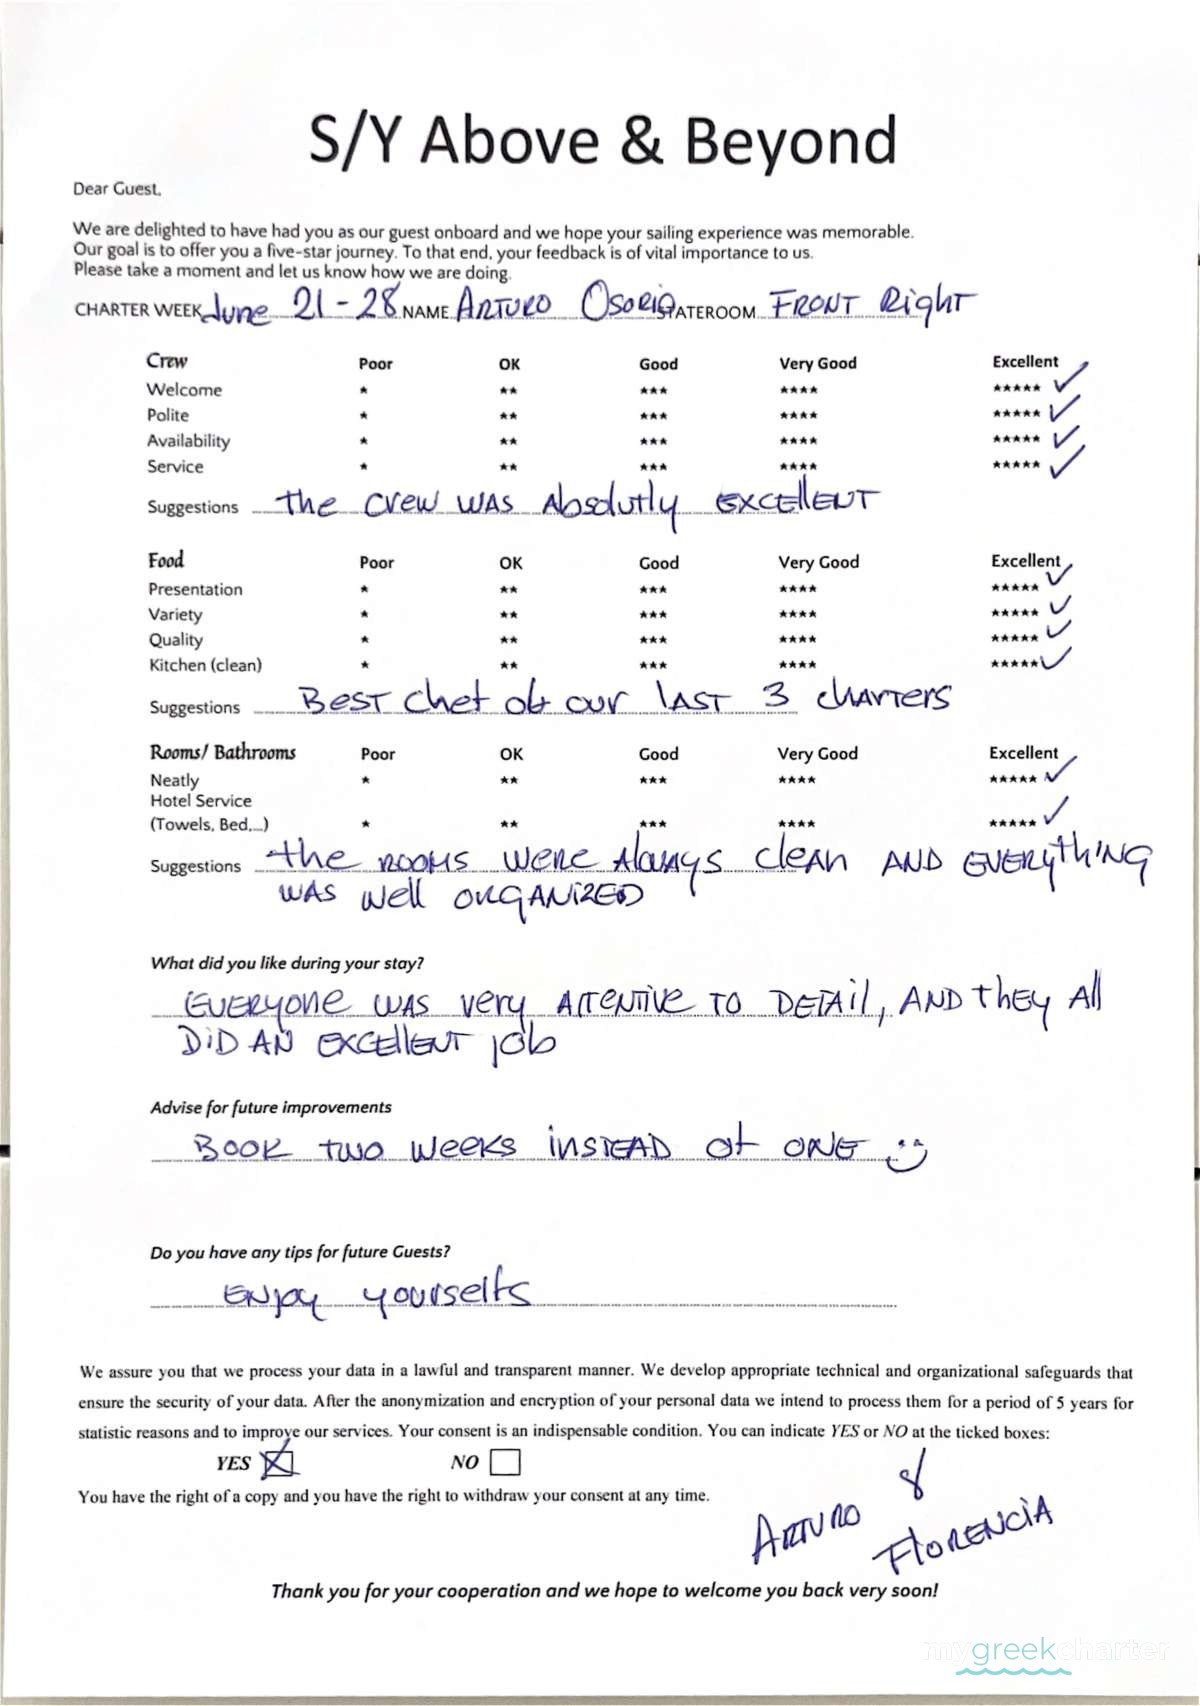 S/Y Above & Beyond
Dear Guest,
We are delighted to have had you as our guest onboard and we hope your sailing experience was memorable.
Our goal is to offer you a five-star journey. To that end, your feedback is of vital importance to us.
Please take a moment and let us know how we are doing.
CHARTER WEEK June 21-28 NAME ARTURO OSORIO STATEROOM FRONT Right
Crew Poor OK Good Very Good Excellent
Welcome * ** *** **** ***** ✓
Polite * ** *** **** ***** ✓
Availability * ** *** **** ***** ✓
Service * ** *** **** ***** ✓
Suggestions the crew was Absolutly EXCEllENT
Food Poor OK Good Very Good Excellent
Presentation * ** *** **** ***** ✓
Variety * ** *** **** ***** ✓
Quality * ** *** **** ***** ✓
Kitchen (clean) * ** *** **** ***** ✓
Suggestions BEST chef of our last 3 charters
Rooms/ Bathrooms Poor OK Good Very Good Excellent
Neatly * ** *** **** ***** ✓
Hotel Service
(Towels, Bed,...) * ** *** **** ***** ✓
Suggestions the rooms were Always clean AND EVERythiNG
WAS well ORGANiZED
What did you like during your stay?
EVERYONE WAS very ATTENTIVE TO DETAIL, AND they All
DiD AN EXCEllENT job
Advise for future improvements
BOOK TWO WEEKS INSTEAD of ONE :)
Do you have any tips for future Guests?
ENjoy yourselfs
We assure you that we process your data in a lawful and transparent manner. We develop appropriate technical and organizational safeguards that
ensure the security of your data. After the anonymization and encryption of your personal data we intend to process them for a period of 5 years for
statistic reasons and to improve our services. Your consent is an indispensable condition. You can indicate YES or NO at the ticked boxes:
YES ☒ NO ☐
You have the right of a copy and you have the right to withdraw your consent at any time.
ARTURO &
FlORENCiA
Thank you for your cooperation and we hope to welcome you back very soon!
mygreekcharter